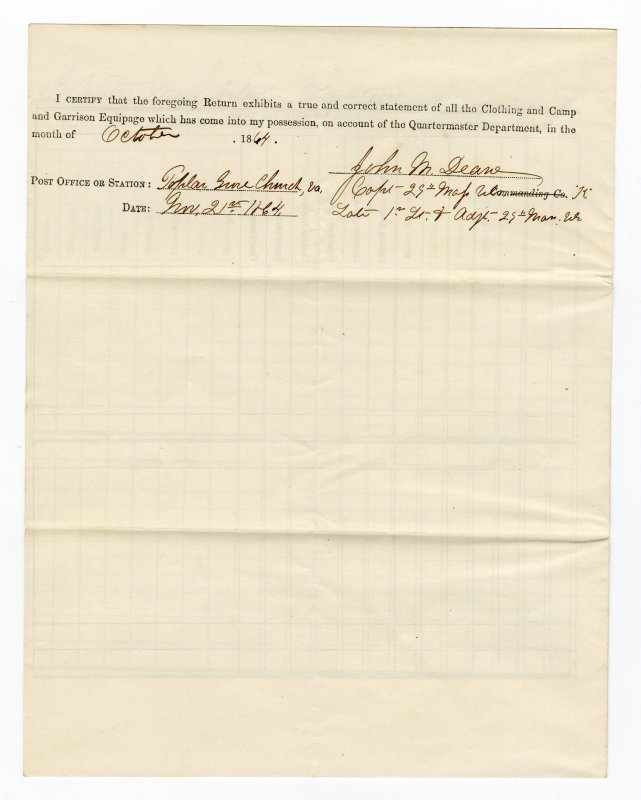 I CERTIFY that the foregoing Return exhibits a true and correct statement of all the Clothing and Camp
and Garrison Equipage which has come into my possession, on account of the Quartermaster Department, in the
month of October . 1864.
John M. Deane
POST OFFICE OR STATION: Poplar Grove Church, Va. Capt 29th Mass Vols Commanding Co. K
DATE: Nov. 21st 1864 Late 1st Lt. & Adjt. 29th Mass. Vols